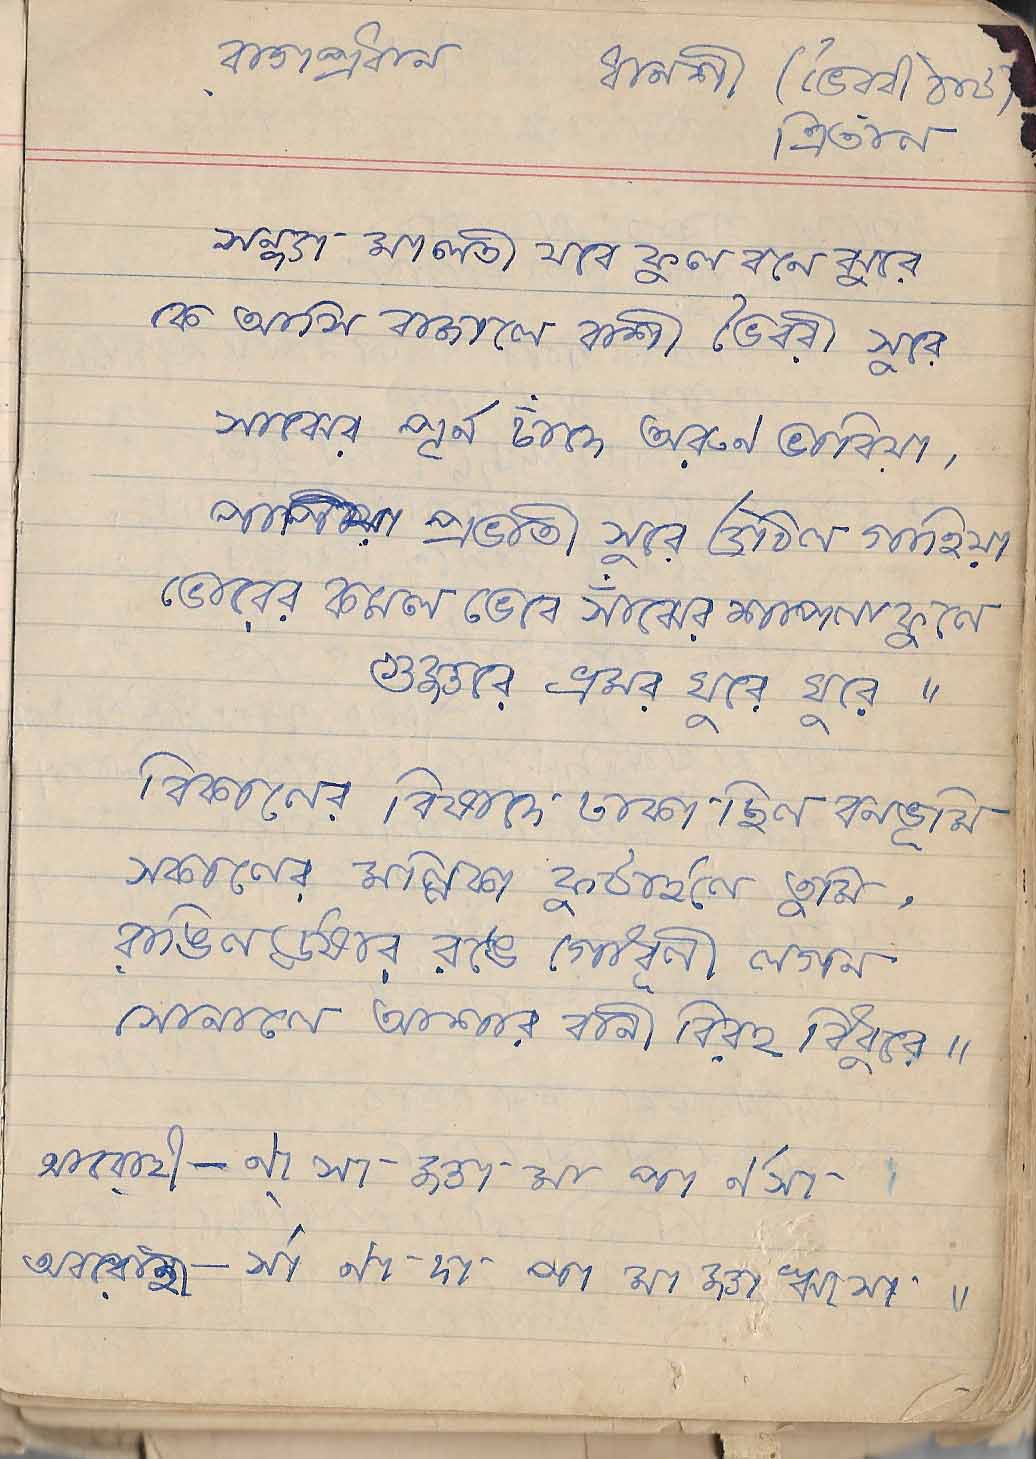 রাগপ্রধান ধানশ্রী (ভৈরবী ঠাট)
ত্রিতাল
সন্ধ্যা মালতী যবে ফুল বনে ঝুরে
কে আসি বাজালে বাশী ভৈরবী সুরে
সাঝের পূর্ন চাঁদে অরুণ ভাবিয়া,
পাপিয়া প্রভাতী সুরে উঠিল গাহিয়া
ভোরের কমল ভেবে সাঁঝের শাপলা ফুলে
গুঞ্জরে ভ্রমর ঘুরে ঘুরে ॥
বিকালের বিষাদে ঢাকা ছিল বনভূমি
সকালের মল্লিকা ফুটাইলে তুমি,
রাঙিল ঊষার রঙে গোধূলী লগন
শোনালে আশার বানী বিরহ বিধুরে ॥
আরোহী — ণা্ সা জ্ঞা মা পা র্ণসা
অবরোহী — র্সা ণা দা পা মা জ্ঞা ঋা সা ॥